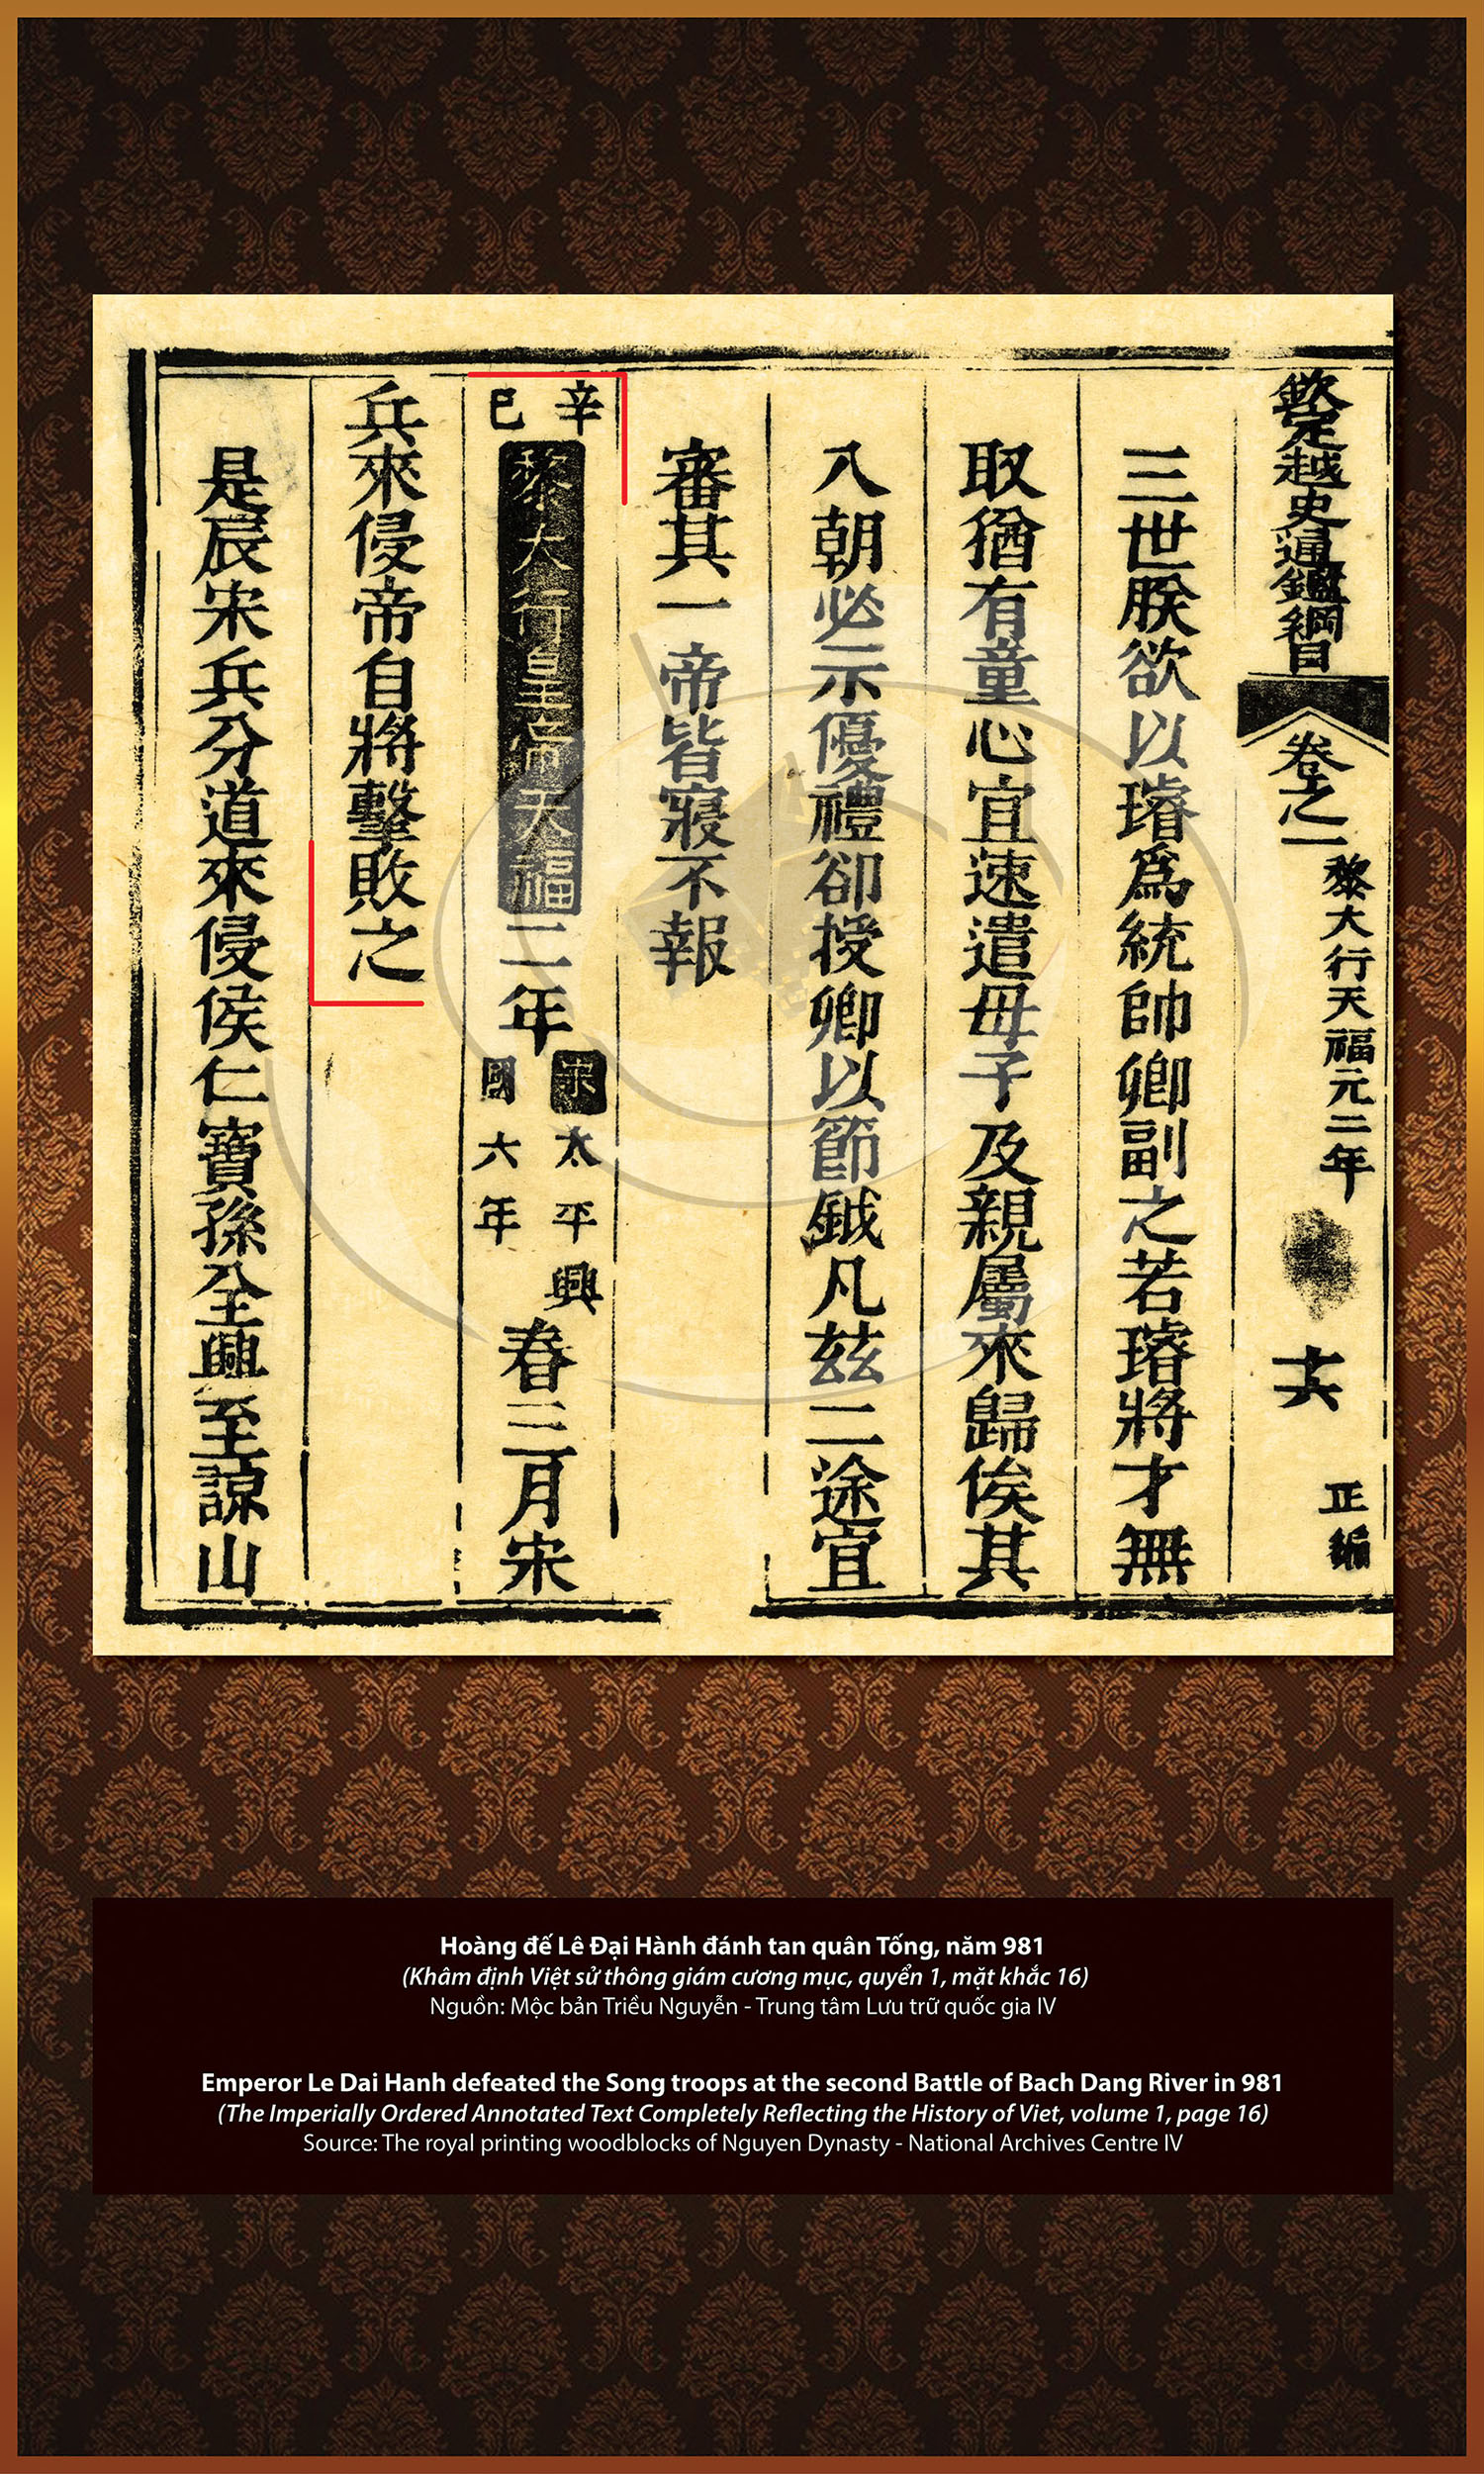 欽定越史通鑑綱目
卷之一
黎大行天福元二年
十六
正編
三世朕欲以璿爲統帥卿副之若璿將才無
取猶有童心宜速遣母子及親屬來歸俟其
入朝必示優禮卻授卿以節鉞凡茲二途宜
審其一帝皆寢不報
辛巳黎大行皇帝天福二年宋太平興國六年春三月宋
兵來侵帝自將擊敗之
是辰宋兵分道來侵侯仁寶孫全興至諒山
Hoàng đế Lê Đại Hành đánh tan quân Tống, năm 981
(Khâm định Việt sử thông giám cương mục, quyển 1, mặt khắc 16)
Nguồn: Mộc bản Triều Nguyễn - Trung tâm Lưu trữ quốc gia IV
Emperor Le Dai Hanh defeated the Song troops at the second Battle of Bach Dang River in 981
(The Imperially Ordered Annotated Text Completely Reflecting the History of Viet, volume 1, page 16)
Source: The royal printing woodblocks of Nguyen Dynasty - National Archives Centre IV